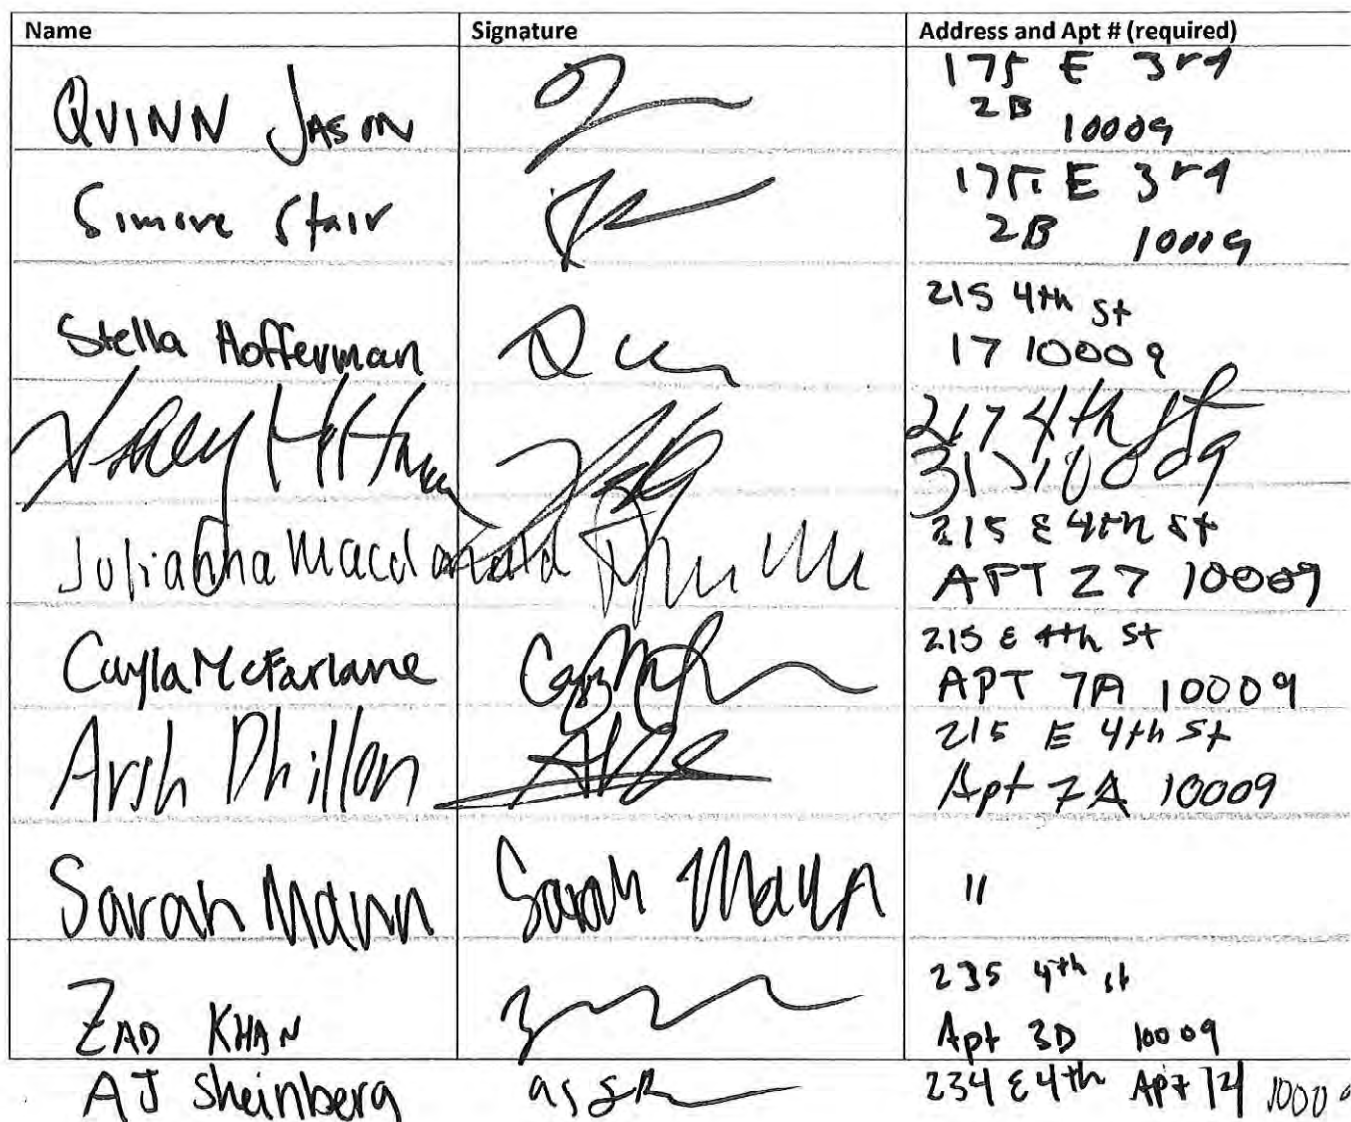 Name Signature Address and Apt # (required)
QUINN JASON 175 E 3rd
2B 10009
Simone Stair 175 E 3rd
2B 10009
Stella Hofferman 215 4th st
17 10009
217 4th st
10009
Julianna Macdonald 215 E 4th St
APT 27 10009
Cayla McFarlane 215 E 4th St
APT 7A 10009
Arsh Dhillon 215 E 4th St
Apt 7A 10009
Sarah Mann Sarah Mann "
ZAD KHAN 235 4th st
Apt 3D 10009
AJ Sheinberg 234 E 4th Apt 14 10009